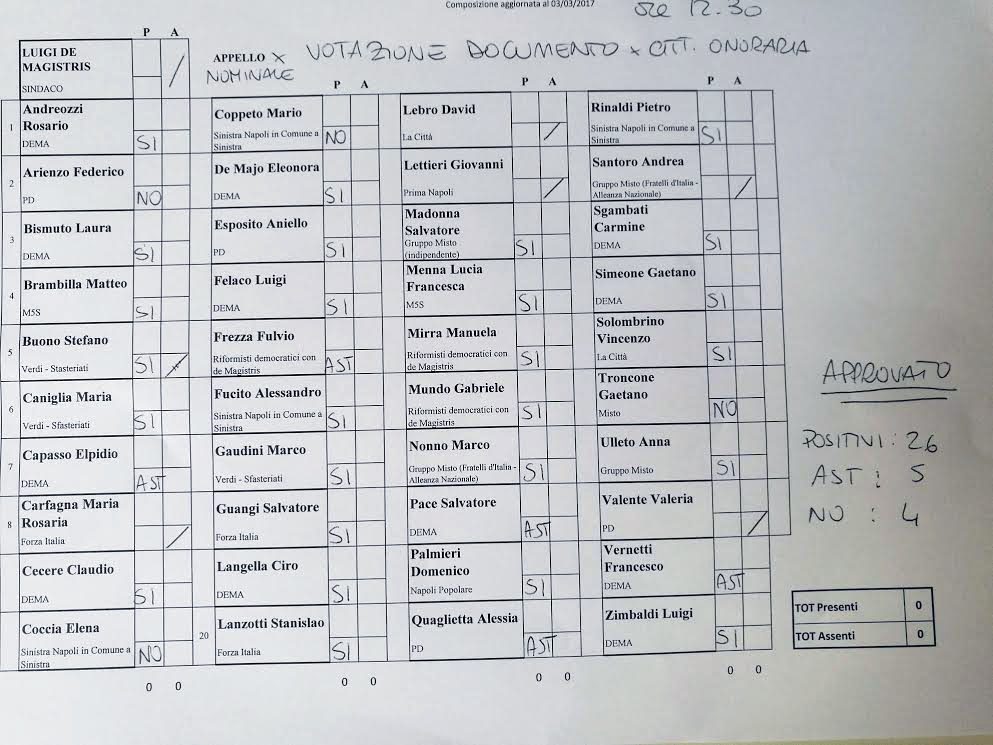 Composizione aggiornata al 03/03/2017
ore 12.30
P A
LUIGI DE
MAGISTRIS
SINDACO /
APPELLO x VOTAZIONE DOCUMENTO x CITT. ONORARIA
NOMINALE
P A P A P A
1 Andreozzi
Rosario
DEMA SI
2 Arienzo Federico
PD NO
3 Bismuto Laura
DEMA SI
4 Brambilla Matteo
M5S SI
5 Buono Stefano
Verdi - Stasteriati SI
6 Caniglia Maria
Verdi - Sfasteriati SI
7 Capasso Elpidio
DEMA AST
8 Carfagna Maria
Rosaria
Forza Italia /
Cecere Claudio
DEMA SI
Coccia Elena
Sinistra Napoli in Comune a
Sinistra NO
0 0
Coppeto Mario
Sinistra Napoli in Comune a
Sinistra NO
De Majo Eleonora
DEMA SI
Esposito Aniello
PD SI
Felaco Luigi
DEMA SI
Frezza Fulvio
Riformisti democratici con
de Magistris AST
Fucito Alessandro
Sinistra Napoli in Comune a
Sinistra SI
Gaudini Marco
Verdi - Sfasteriati SI
Guangi Salvatore
Forza Italia SI
Langella Ciro
DEMA SI
20 Lanzotti Stanislao
Forza Italia SI
0 0
Lebro David
La Città /
Lettieri Giovanni
Prima Napoli /
Madonna
Salvatore
Gruppo Misto
(indipendente) SI
Menna Lucia
Francesca
M5S SI
Mirra Manuela
Riformisti democratici con
de Magistris SI
Mundo Gabriele
Riformisti democratici con
de Magistris SI
Nonno Marco
Gruppo Misto (Fratelli d'Italia -
Alleanza Nazionale) SI
Pace Salvatore
DEMA AST
Palmieri
Domenico
Napoli Popolare SI
Quaglietta Alessia
PD AST
0 0
Rinaldi Pietro
Sinistra Napoli in Comune a
Sinistra SI
Santoro Andrea
Gruppo Misto (Fratelli d'Italia -
Alleanza Nazionale) /
Sgambati
Carmine
DEMA SI
Simeone Gaetano
DEMA SI
Solombrino
Vincenzo
La Città SI
Troncone
Gaetano
Misto NO
Ulleto Anna
Gruppo Misto SI
Valente Valeria
PD /
Vernetti
Francesco
DEMA AST
Zimbaldi Luigi
DEMA SI
0 0
APPROVATO
POSITIVI : 26
AST : 5
NO : 4
TOT Presenti 0
TOT Assenti 0